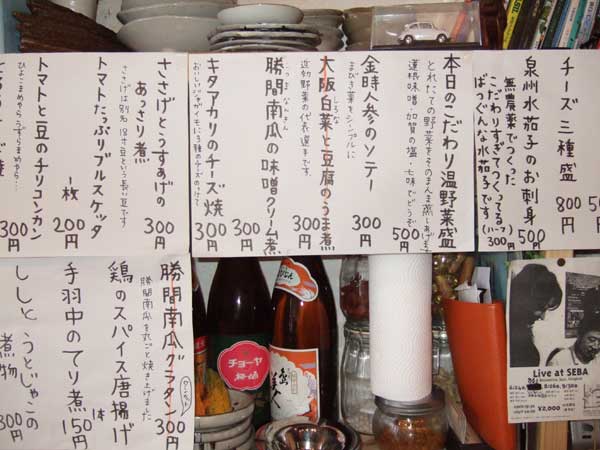 チーズ三種盛
800円
泉州水茄子のお刺身
無農薬でつくった
こだわりすぎてつくってる
ばつぐんな水茄子です
(ハーフ)
300円
500円
本日のこだわり温野菜盛
とれたての野菜をそのまんま蒸しあげます
蓮根味噌・加賀の塩・七味でどうぞ
500円
金時人参のソテー
まびき菜をシンプルに
300円
大阪しろな白菜と豆腐のうま煮
近郊野菜の代表選手です。
300円
勝間南瓜の味噌クリーム煮
300円
キタアカリのチーズ焼
300円
ささげとうすあげの
あっさり煮
ささげは別名十八寸豆という長い豆です
300円
トマトたっぷりブルスケッタ
一枚
200円
トマトと豆のチリコンカン
ひよこまめやらうずらまめやら…
300円
勝間南瓜グラタン
勝間南瓜を丸ごと焼き上げました
300円
鶏のスパイス唐揚げ
手羽中のてり煮
1本
150円
ししとうとじゃこの
煮物
300円
チョーヤ
梅酒
Live at SEBA
¥2,000